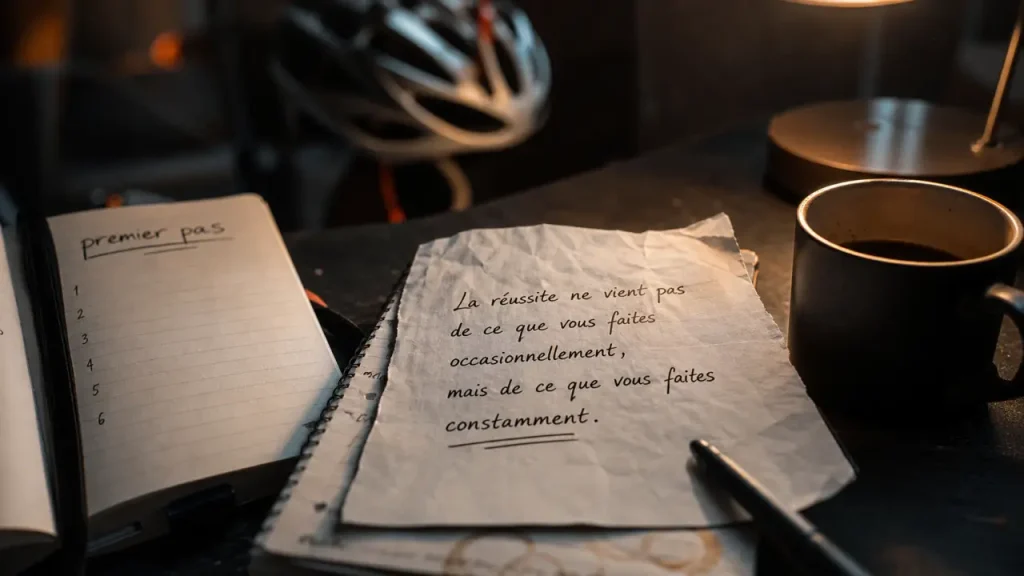 premier pas
1
2
3
4
5
6
La réussite ne vient pas
de ce que vous faites
occasionnellement,
mais de ce que vous faites
constamment.